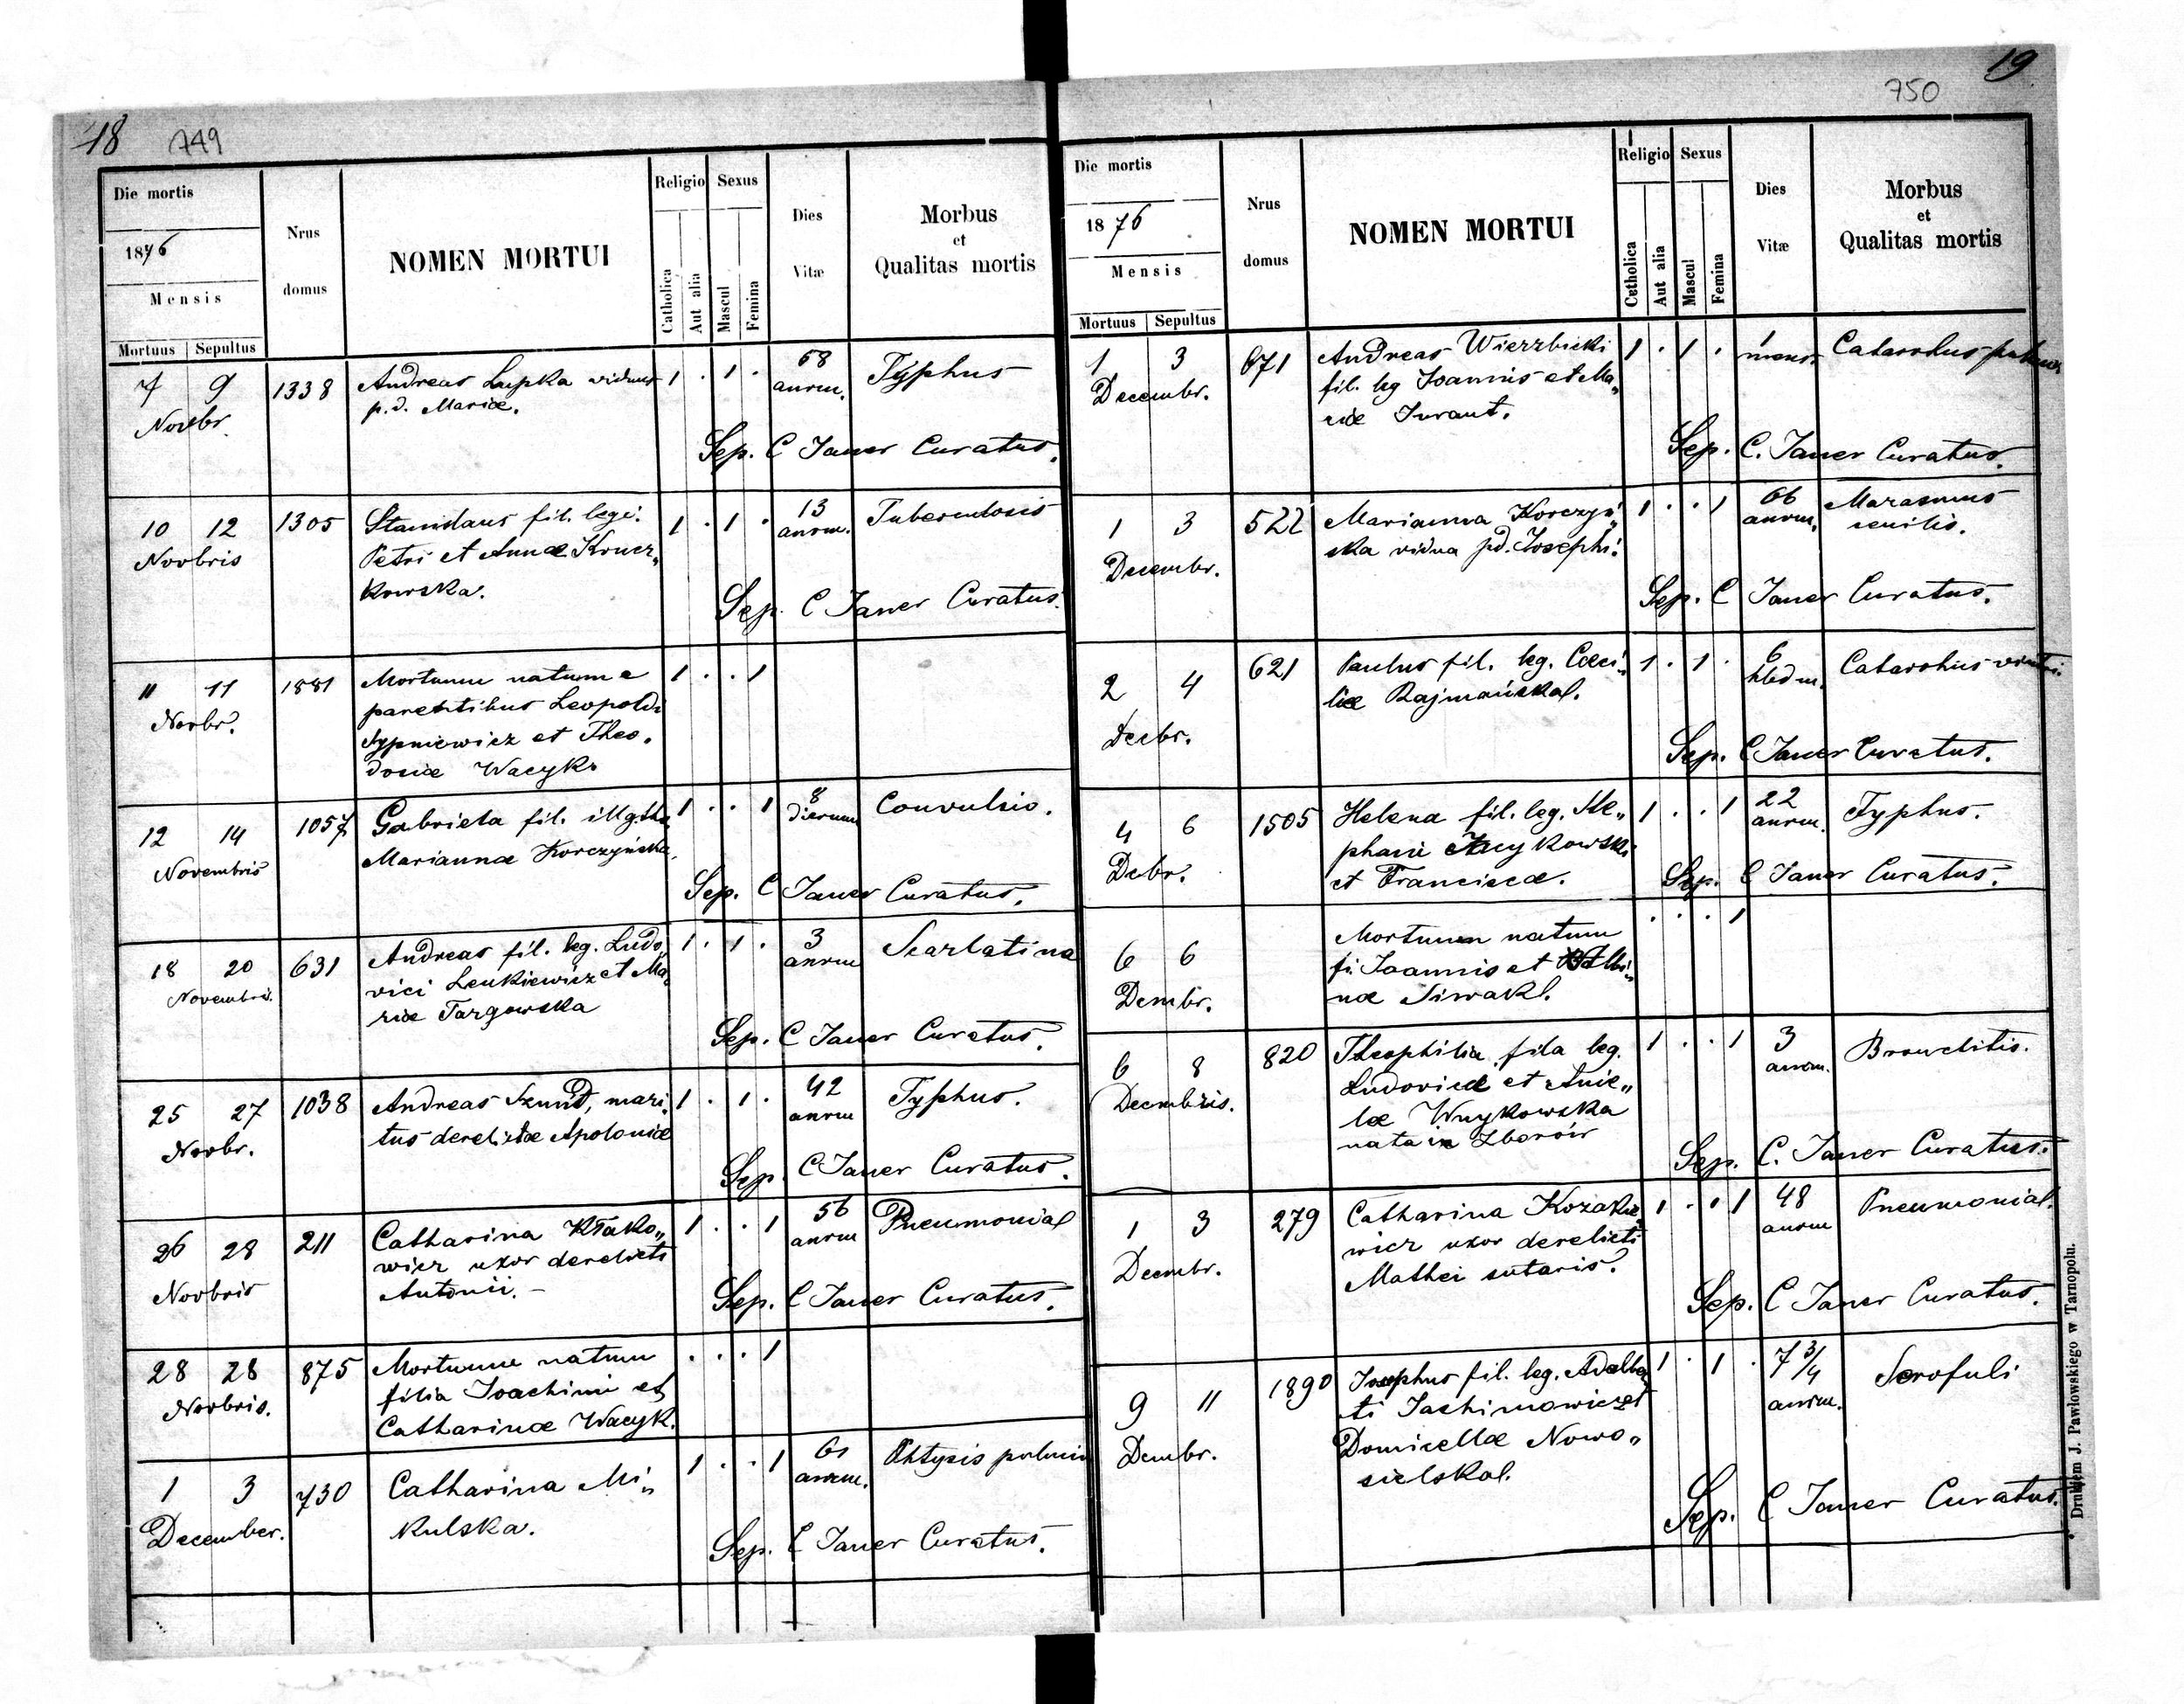 18 749
Die mortis
1876
Mensis
Mortuus Sepultus
Nrus
domus
NOMEN MORTUI
Religio
Catholica
Aut alia
Sexus
Mascul
Femina
Dies
Vitæ
Morbus
et
Qualitas mortis
7 9 1338 Andreas Łupka viduus 1 . 1 . 68 Typhus
Novbr. p. d. Mariæ. anrum.
Sep. C Janer Curatus.
10 12 1305 Stanislaus fil. legi. 1 . 1 . 13 Tuberculosis
Novbris Petri et Annæ anrum.
kowska.
Sep. C Janer Curatus.
11 11 1881 Mortuum natum e 1 . . 1
Novbr. parentibus Leopoldi
Sypniewicz et Theo„
dosiæ Wacyk.
12 14 1057 Gabriela fil. 1 . . 1 8 Convulsio.
Novembris Mariannæ Korczyńska. dierum
Sep. C Janer Curatus.
18 20 631 Andreas fil. leg. Ludo„ 1 . 1 . 3 Scarlatina
Novembris. vici Leukiewicz et Ma„ anrum
riæ Targowska
Sep. C Janer Curatus.
25 27 1038 Andreas mari„ 1 . 1 . 42 Typhus.
Novbr. tus derelictæ Apoloniæ anrum
Sep. C Janer Curatus.
26 28 211 Catharina Kłako„ 1 . . 1 56 Pneumonial
Novbris wicz uxor derelicti anrum
Antonii. –
Sep. C Janer Curatus.
28 28 875 Mortuum natum . . . 1
Novbris. filia Joachimi et
Catharinæ Wacyk.
1 3 730 Catharina Mi„ 1 . . 1 61 Phtysis pulmin
December. kulska. anrum.
Sep. C Janer Curatus.
750 19
Die mortis
1876
Mensis
Mortuus Sepultus
Nrus
domus
NOMEN MORTUI
Religio
Catholica
Aut alia
Sexus
Mascul
Femina
Dies
Vitæ
Morbus
et
Qualitas mortis
1 3 671 Andreas Wierzbicki 1 . 1 . 1 mens. Catarrhus
Decembr. fil. leg Joannis et Ma„
riæ Turant.
Sep. C. Janer Curatus.
1 3 522 Marianna Korczyń„ 1 . . 1 66 Marasmus
Decembr. ska vidua pd. Josephi. anrum. senilis.
Sep. C Janer Curatus.
2 4 621 Paulus fil. leg. Cæci„ 1 . 1 . 6 Catarrhus
Decbr. liæ Rajmańskal. hbdm.
Sep. C Janer Curatus.
4 6 1505 Helena fil. leg. Ste„ 1 . . 1 22 Typhus.
Debr. phani anrum.
et Franciscæ.
Sep. C Janer Curatus.
6 6 Mortuum natum . . . 1
Dembr. fi. Joannis et Albi„
næ Siwakl.
6 8 820 Theophilia fila leg. 1 . . 1 3 Bronchitis.
Decembris. Ludovicæ et Anie„ anrum.
læ Wnykowska
nata in Zborów
Sep. C. Janer Curatus.
1 3 279 Catharina Kozakie„ 1 . . 1 48 Pneumonial.
Decembr. wicz uxor derelicti anrum
Mathei sutaris.
Sep. C Janer Curatus.
9 11 1890 Josephus fil. leg. Adalber 1 . 1 . 7 3/4 Scrofuli
Dembr. ti Jachimowicz et anrum.
Domicellæ Nowo„
sielskal.
Sep. C Janer Curatus.
Drukiem J. Pawłowskiego w Tarnopolu.